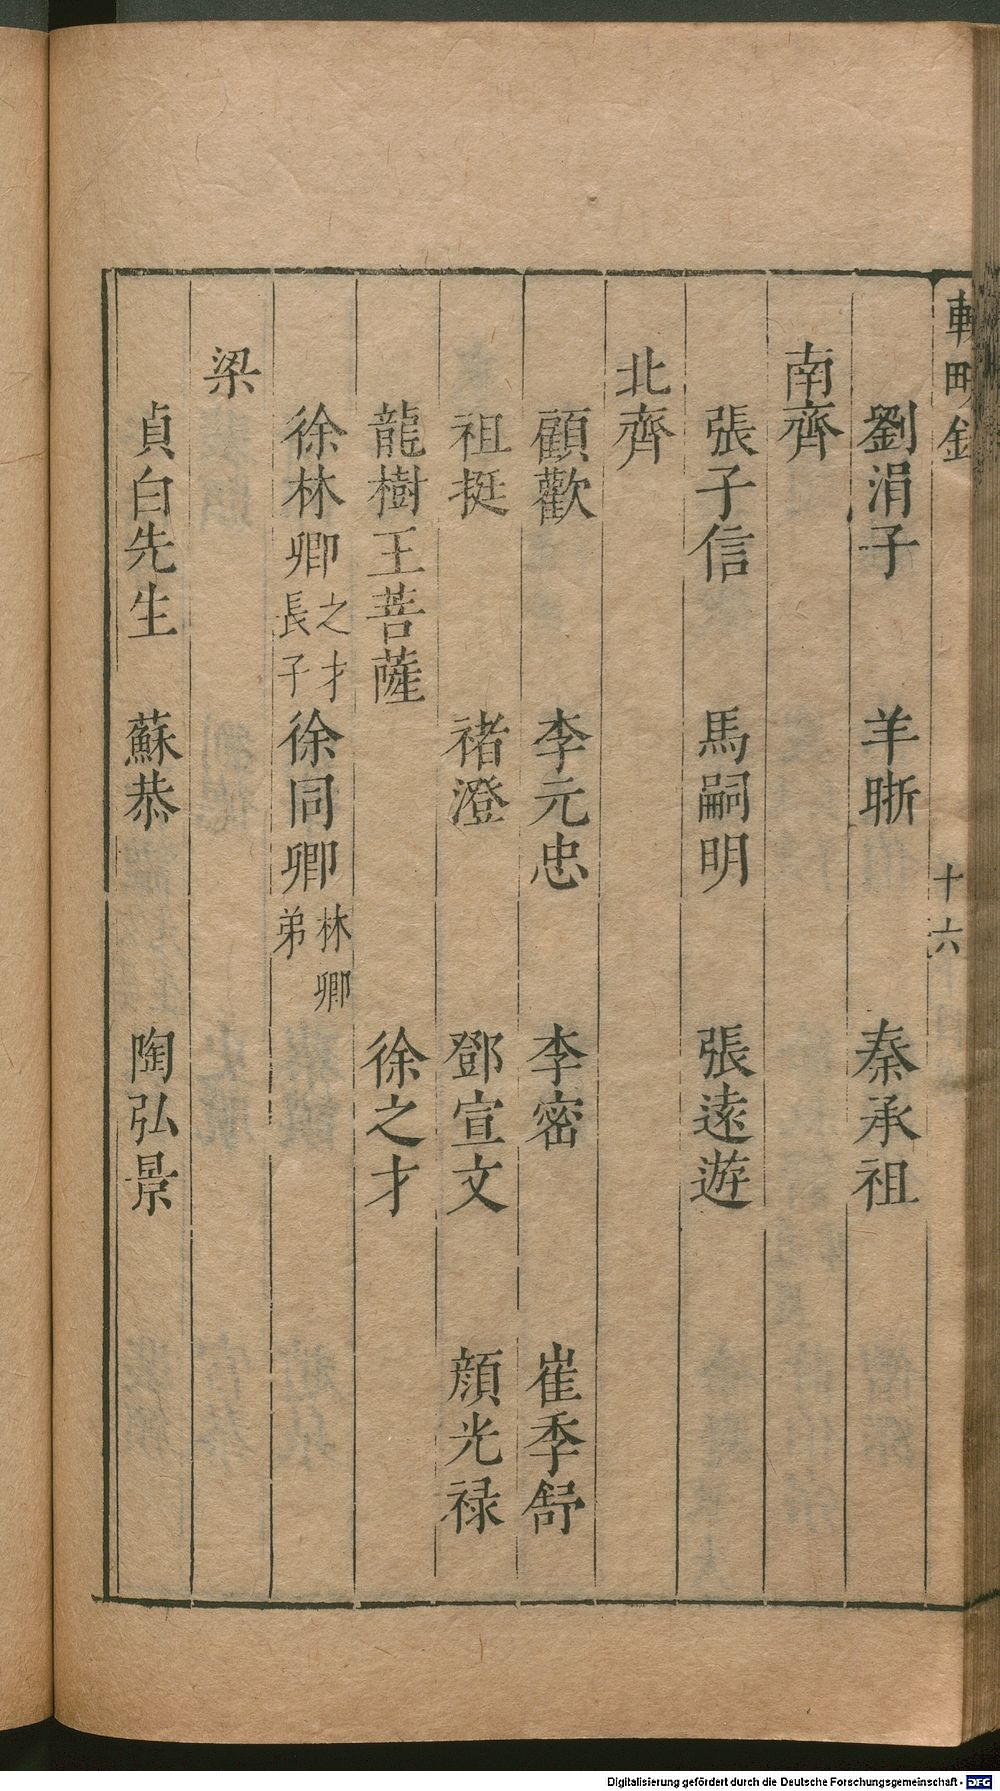 十六
劉涓子 羊晣 秦承祖
南齊
張子信 馬嗣明 張遠遊
北齊
顧歡 李元忠 李密 崔季舒
祖挺 褚澄 鄧宣文 顔光禄
龍樹王菩薩 徐之才
徐林卿之才長子 徐同卿林卿弟
梁
貞白先生 蘇恭 陶弘景
Digitalisierung gefördert durch die Deutsche Forschungsgemeinschaft - DFG